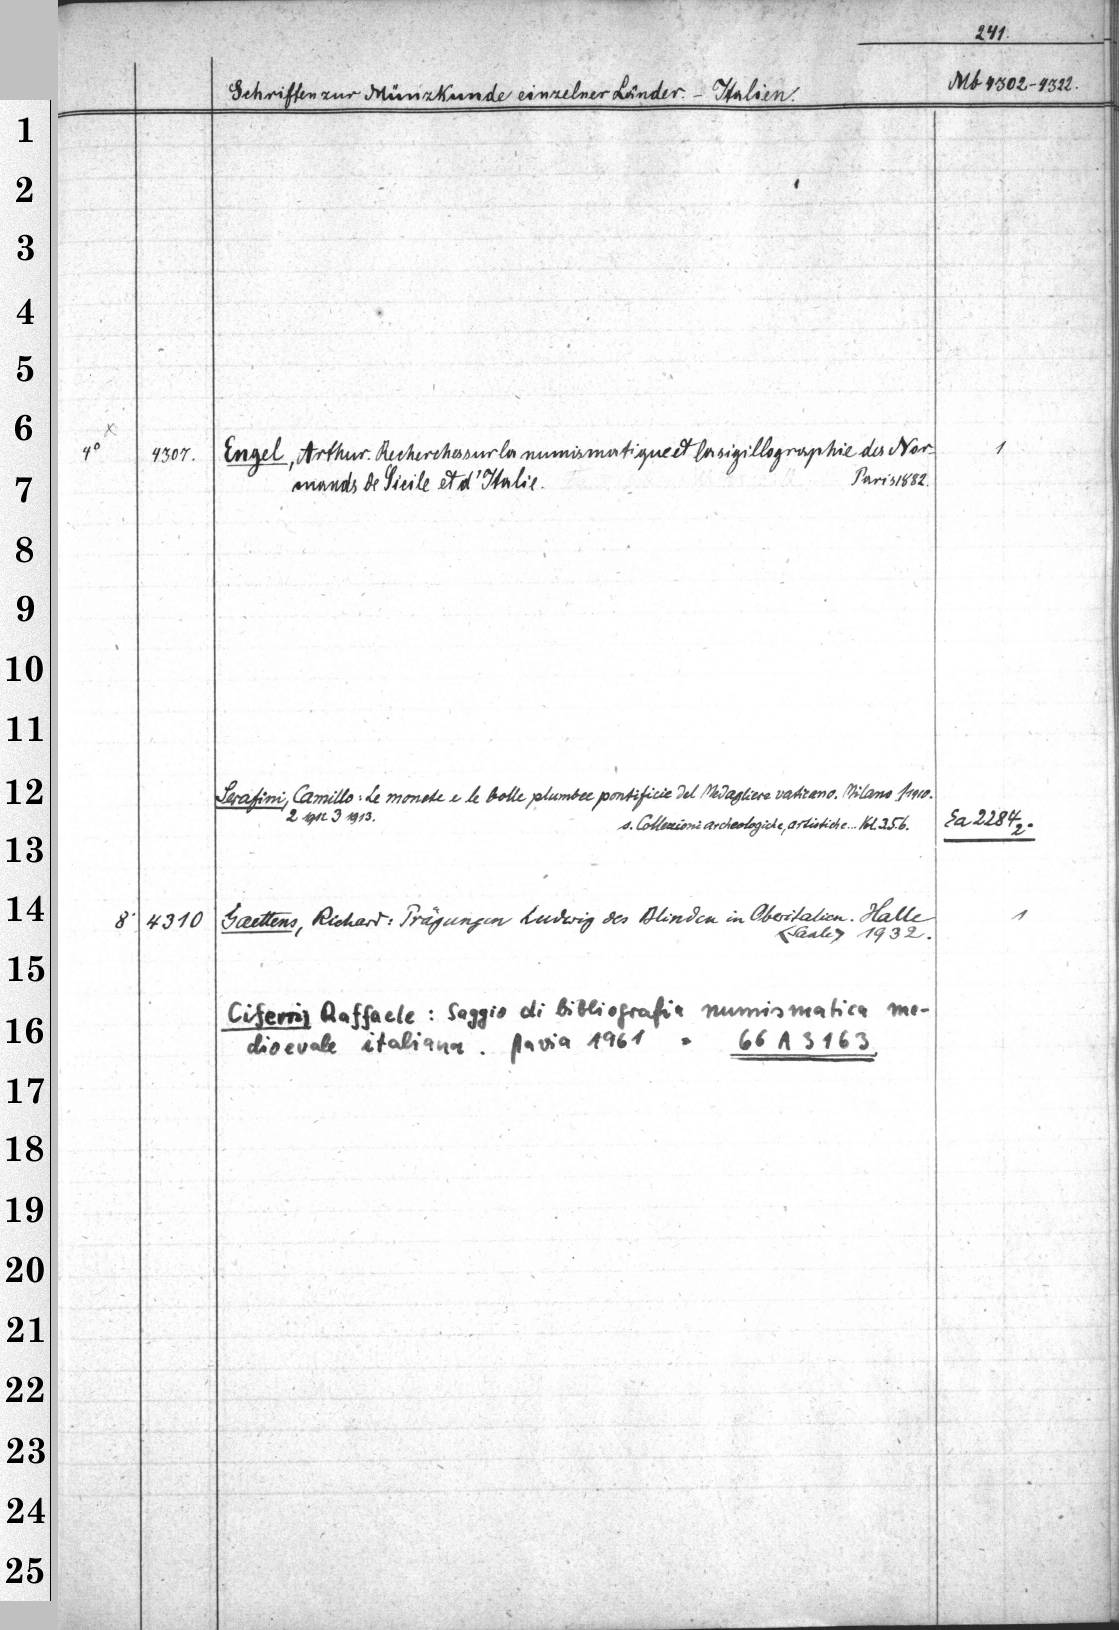 241.
Schriften zur Münzkunde einzelner Länder. - Italien.
Mb 4302-4322.
1
2
3
4
5
6
4° x 4307. Engel, Arthur. Recherches sur la numismatique et la sigillographie des Nor- 1
7
mands de Sicile et d'Italie. Paris 1882.
8
9
10
11
12
Serafini, Camillo: Le monete e le bolle plumbee pontificie del Medagliere vaticano. Milano 1910.
2 1912 3 1913. s. Collezioni archeologiche, artistiche... Vol. 3.5.6. Ea 2284/2.
13
14
8° 4310 Gaettens, Richard: Prägungen Ludwig des Blinden in Oberitalien. Halle 1
<Saale> 1932.
15
Ciferri, Raffaele: Saggio di bibliografia numismatica me-
16
dioevale italiana. Pavia 1961 = 66 A 3163
17
18
19
20
21
22
23
24
25